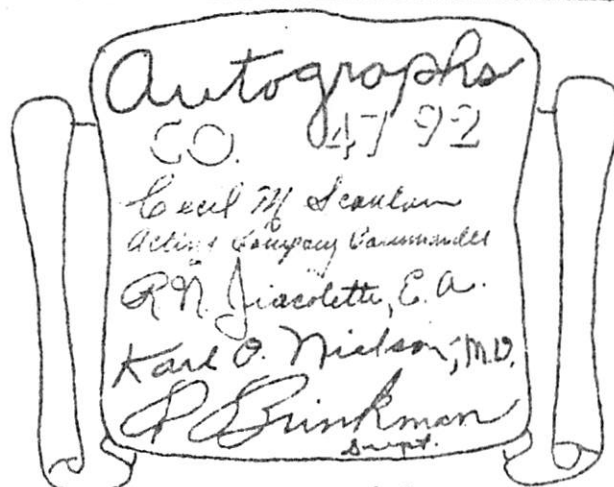 Autographs
CO. 4792
Cecil M Scanlan
Acting Company Commander
R. N. Jiacolette, E. A.
Karl O. Nielson, M.D.
Brinkman
Supt.